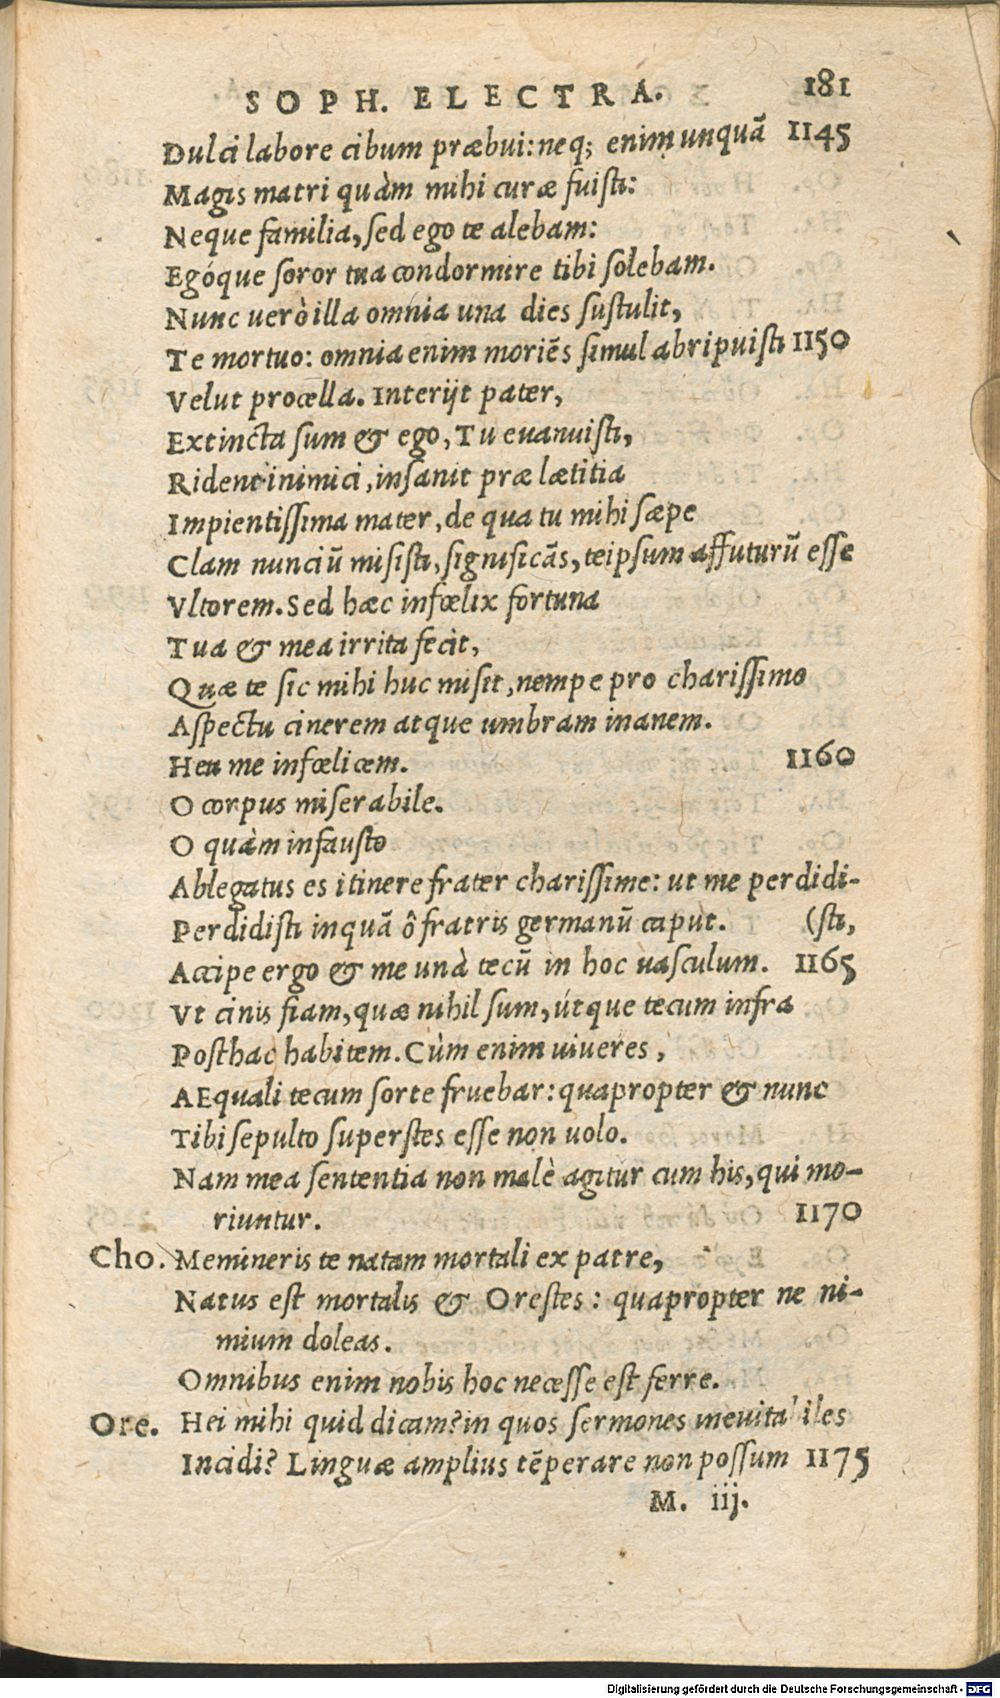 SOPH. ELECTRA. 181
Dulci labore cibum præbui: neq; enim unquã 1145
Magis matri quàm mihi curæ fuisti:
Neque familia, sed ego te alebam:
Egóque soror tua condormire tibi solebam.
Nunc uerò illa omnia una dies sustulit,
Te mortuo: omnia enim moriẽs simul abripuisti 1150
Velut procella. Interijt pater,
Extincta sum & ego, Tu euanuisti,
Rident inimici, insanit præ lætitia
Impientissima mater, de qua tu mihi sæpe
Clam nunciũ misisti, significãs, teipsum affuturũ esse
Vltorem. Sed hæc infœlix fortuna
Tua & mea irrita fecit,
Quæ te sic mihi huc misit, nempe pro charissimo
Aspectu cinerem atque umbram inanem.
Heu me infœlicem. 1160
O corpus miserabile.
O quàm infausto
Ablegatus es itinere frater charissime: ut me perdidi-
Perdidisti inquã ô fratris germanũ caput. (sti,
Accipe ergo & me unà tecũ in hoc uasculum. 1165
Vt cinis fiam, quæ nihil sum, útque tecum infra
Posthac habitem. Cùm enim uiueres,
AEquali tecum sorte fruebar: quapropter & nunc
Tibi sepulto superstes esse non uolo.
Nam mea sententia non malè agitur cum his, qui mo-
riuntur. 1170
Cho. Memineris te natam mortali ex patre,
Natus est mortalis & Orestes: quapropter ne ni-
mium doleas.
Omnibus enim nobis hoc necesse est ferre.
Ore. Hei mihi quid dicam? in quos sermones ineuitabiles
Incidi? Linguæ amplius tẽperare non possum 1175
M. iij.
Digitalisierung gefördert durch die Deutsche Forschungsgemeinschaft - DFG